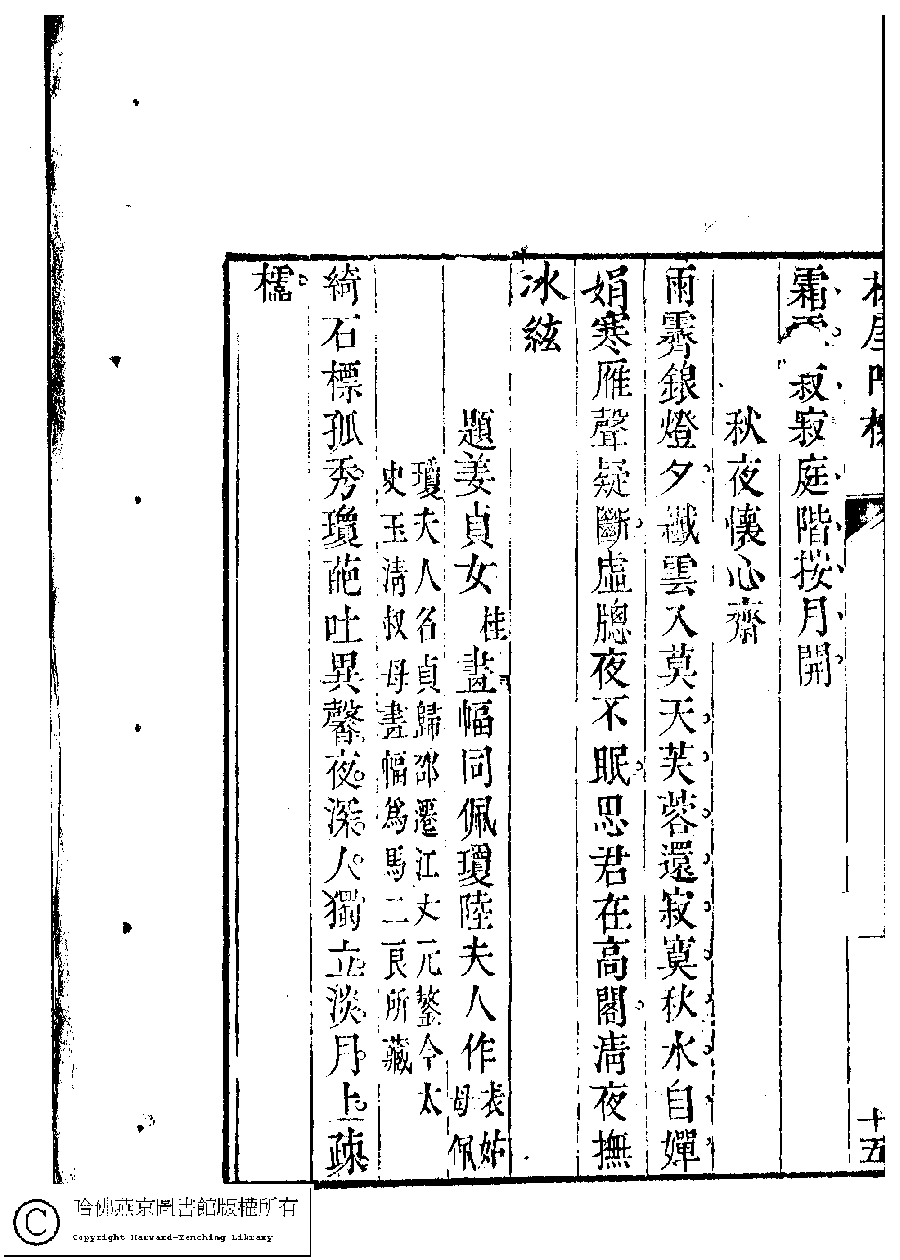 十五
霜
寂寂庭階按月開
秋夜懷心齋
雨霽銀燈夕纖雲入莫天芙蓉還寂寞秋水自嬋
娟寒雁聲疑斷虛牕夜不眠思君在高閣清夜撫
冰絃
題姜貞女桂畫幅同佩瓊陸夫人作表姑母佩
瓊夫人名貞歸邵遷江丈元鏊今太
史玉清叔母畫幅為馬二良所藏
綺石標孤秀瓊葩吐異馨夜深人獨立淡月上疎
櫺
哈佛燕京圖書館版權所有
Copyright Harvard-Yenching Library